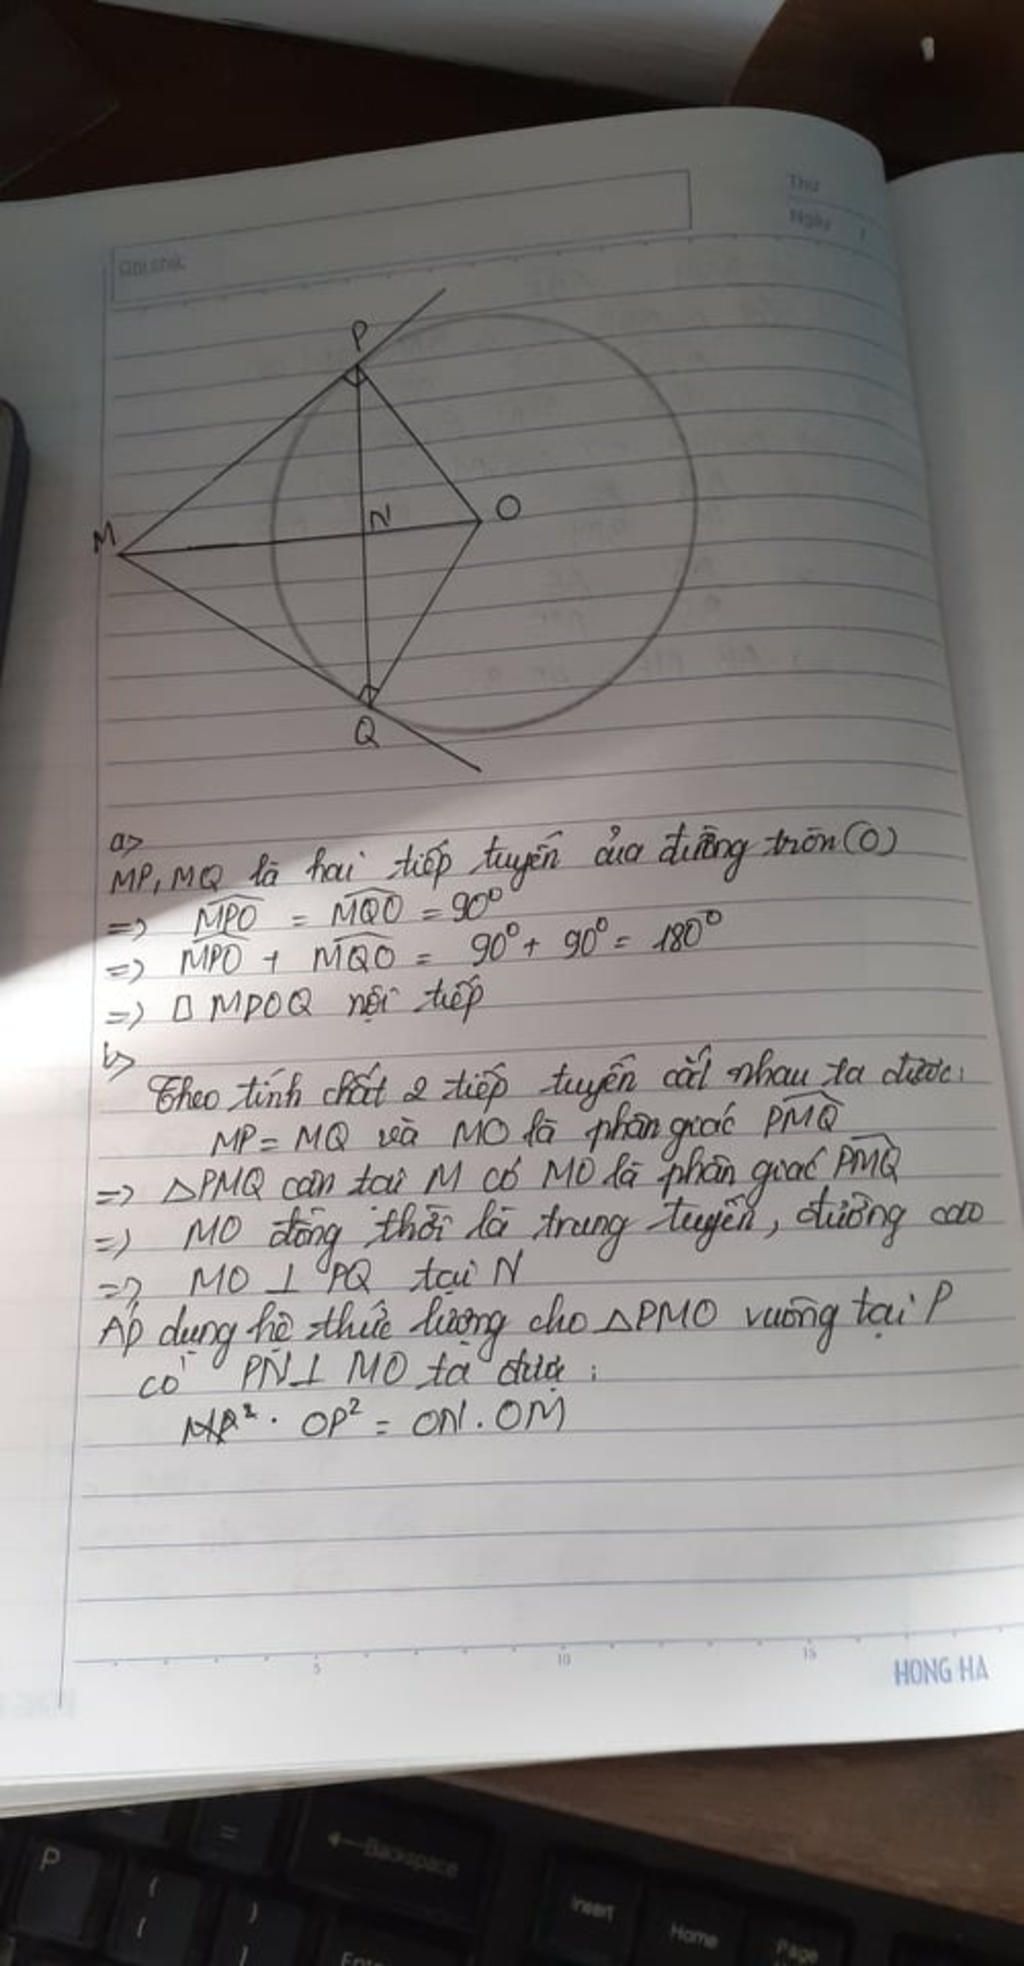 Thứ
Ngày /
Ghi chú:
P
M
N
O
Q
a>
MP, MQ là hai tiếp tuyến của đường tròn (O)
=> MPO = MQO = 90⁰
=> MPO + MQO = 90⁰ + 90⁰ = 180⁰
=> □ MPOQ nội tiếp
b>
Theo tính chất 2 tiếp tuyến cắt nhau ta được:
MP = MQ và MO là phân giác PMQ
=> △PMQ cân tại M có MO là phân giác PMQ
=> MO đồng thời là trung tuyến, đường cao
=> MO ⊥ PQ tại N
Áp dụng hệ thức lượng cho △PMO vuông tại P
có PN ⊥ MO ta được:
OP² = ON . OM
5 10 15
HONG HA
P
=
←Backspace
{
[
}
]
Enter
Insert
Home
Page